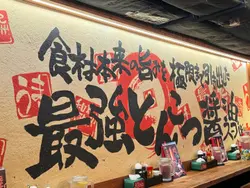 食材本来の旨みを極限まで引き出した
最強とんこつ醤油